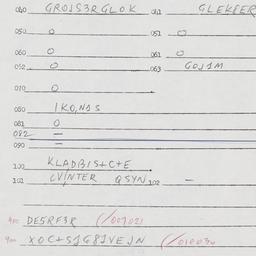 040 GROJS3RGLOK 041 GLEKPER
050 0 051 0
060 0 061 0
062 0 063 GOJ1M
070 0
080 1KO,N1S
081 0
082 —
090 —
100 KLADBIS+C+E
101 LVINTER QSYN 102 —
400 DE5RF3R (/001021
900 XOC+S1G81VEJN (/010030